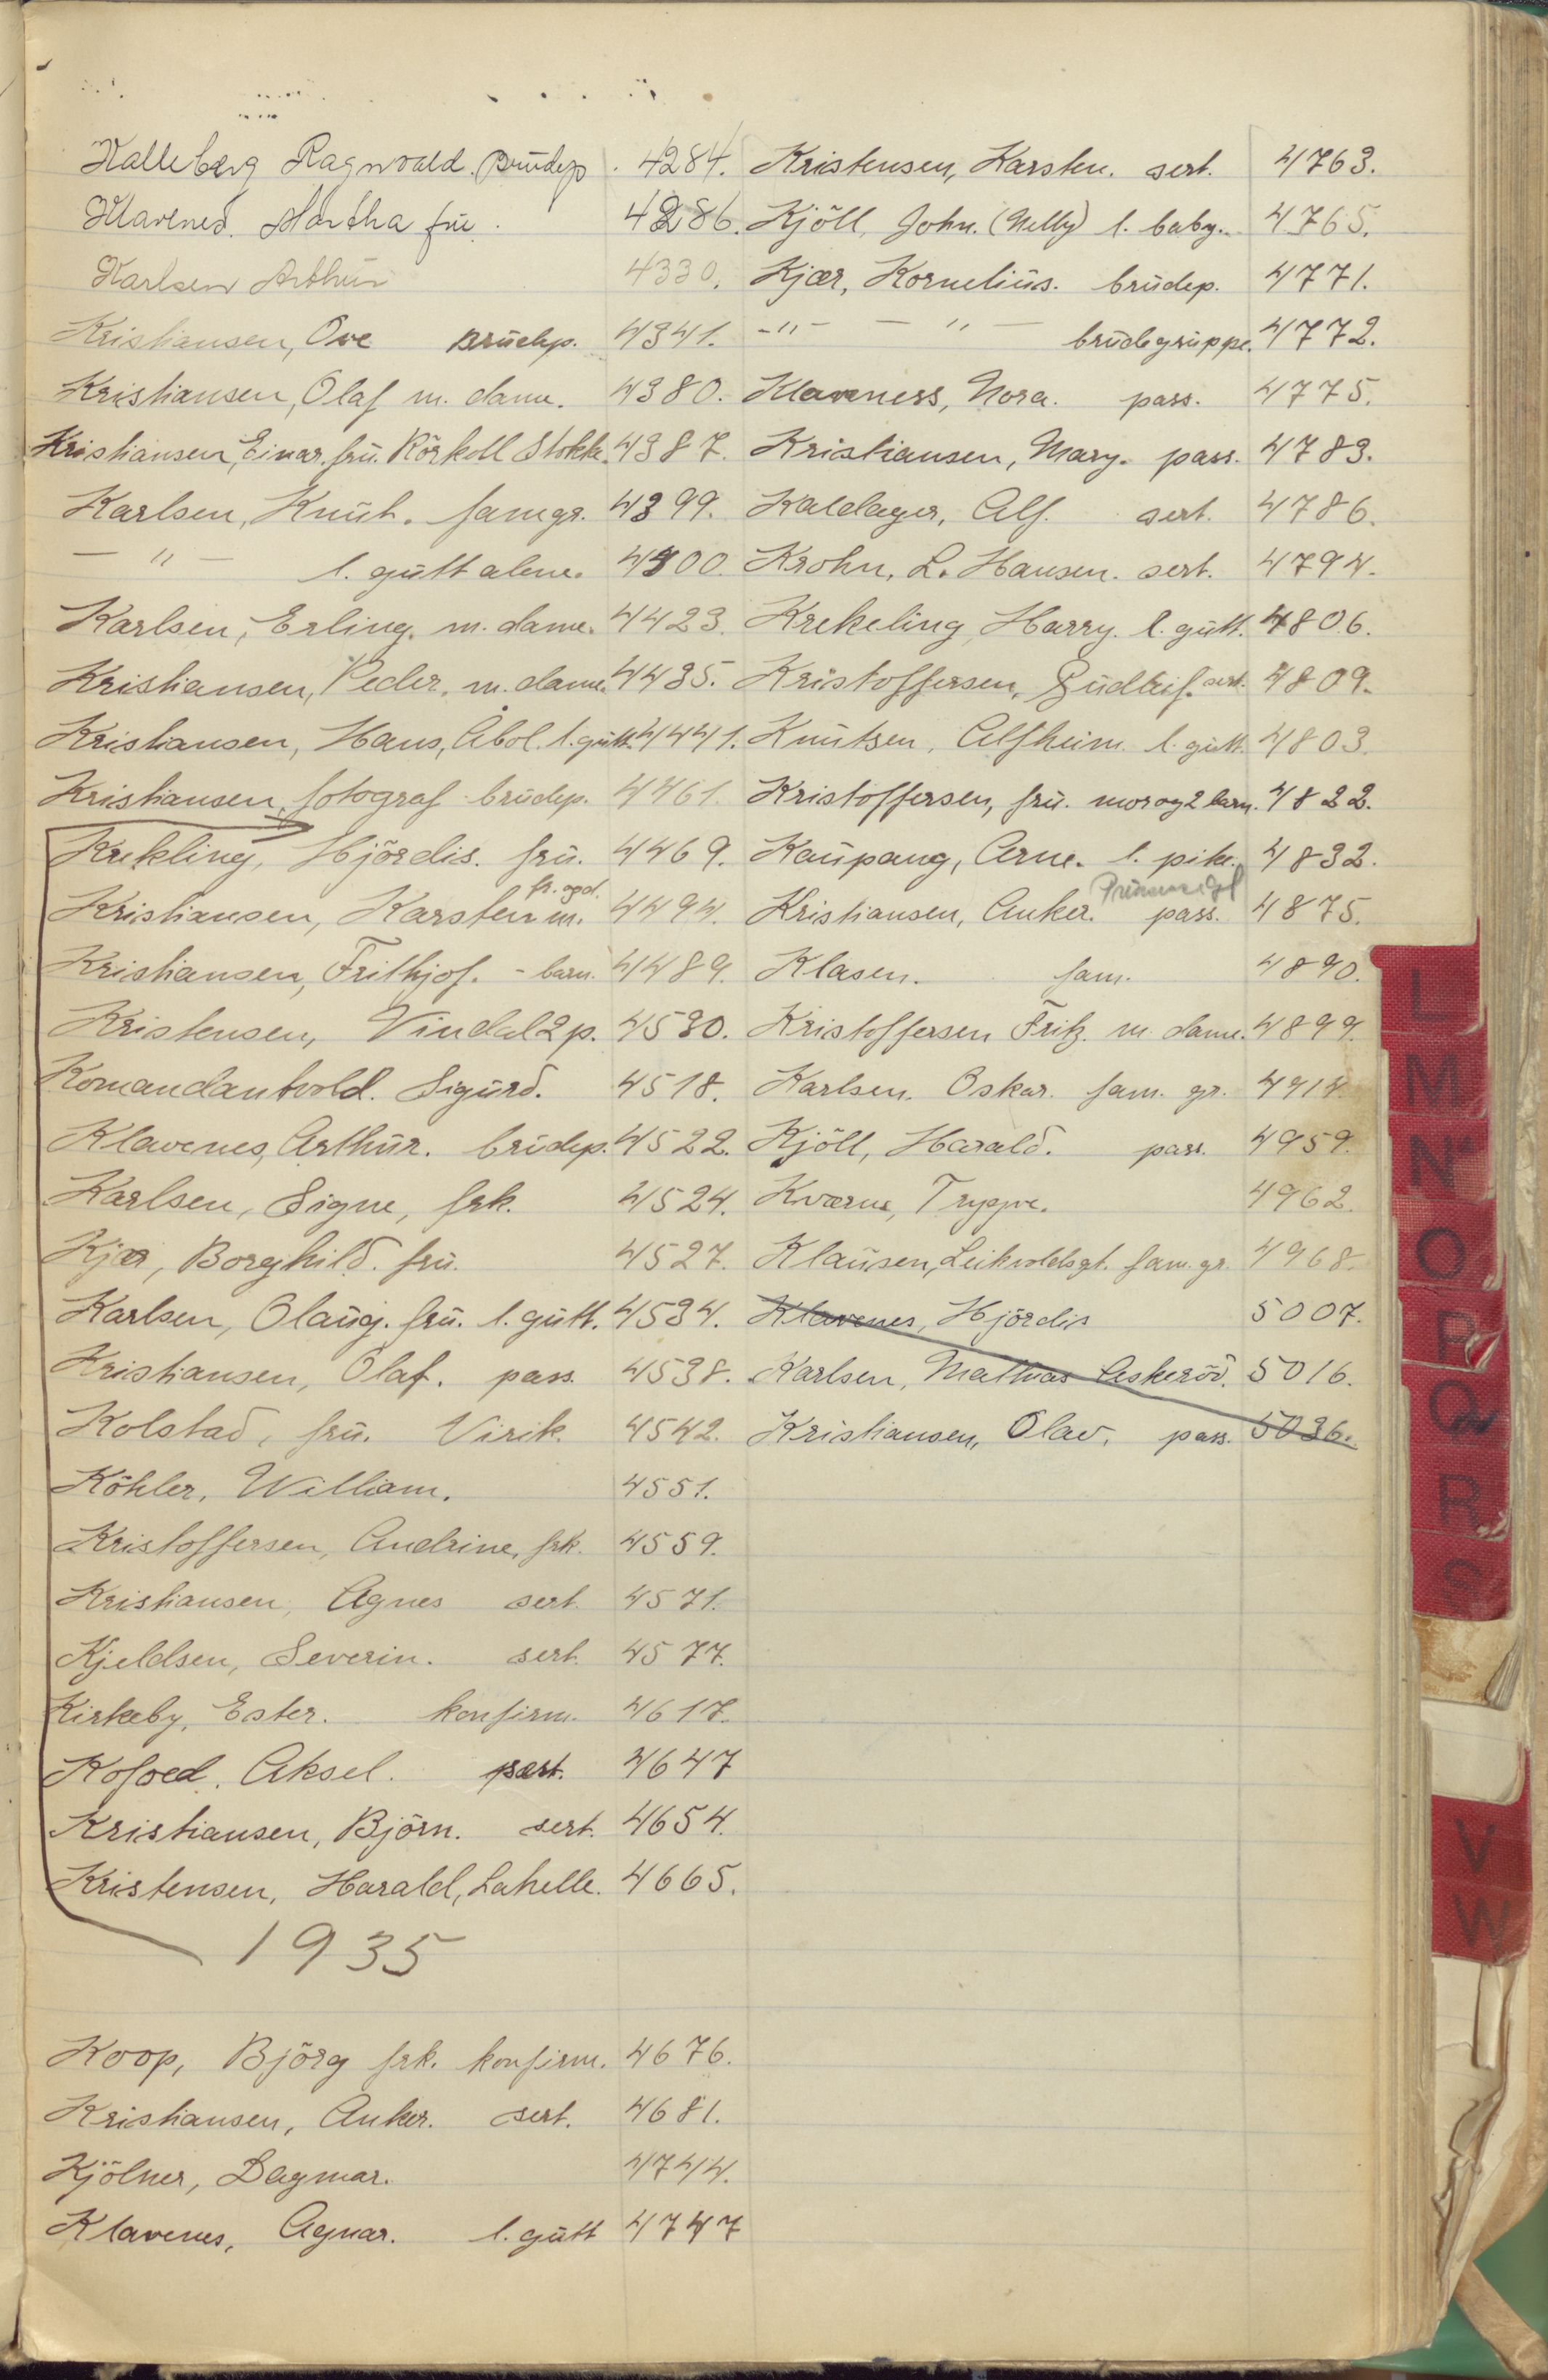 Kalleberg Ragnvald. Brudep. 4284.
Klavenes. Martha frü. 4286.
Karlsen Arthur 4330.
Kristiansen, Ove brüdep. 4341.
Kristiansen, Olaf m. dame. 4380.
Kristiansen, Einar. frü. Rörkoll Stokke. 4387.
Karlsen, Knüt. famgr. 4399.
— " — l. gütt alene. 4400.
Karlsen, Erling. m. dame. 4423.
Kristiansen, Peder. m. dame. 4435.
Kristiansen, Hans, Åbol. l. gütt. 4441.
Kristiansen, fotograf brüdep. 4461.
Krekling, Hjördis. frü. 4469.
Kristiansen, Karsten m. fr. og d. 4494.
Kristiansen, Frithjof. - barn. 4489.
Kristensen, Vindal 2 p. 4530.
Komandantvold. Sigürd. 4518.
Klavenes, Arthür. brüdep. 4522.
Karlsen, Signe, frk. 4524.
Kjær, Borghild. frü. 4527.
Karlsen, Olaüg. frü. l. gütt. 4534.
Kristiansen, Olaf. pass. 4538.
Kolstad, frü. Virik. 4542.
Köhler, William. 4551.
Kristoffersen, Andrine, frk. 4559.
Kristiansen, Agnes sert. 4571.
Kjeldsen, Severin. sert. 4577.
Kirkeby, Ester. konfirm. 4617.
Kofoed. Aksel. 4647
Kristiansen, Björn. sert. 4654.
Kristensen, Harald, Lahelle. 4665.
1935
Koop, Björg frk. konfirm. 4676.
Kristiansen, Anker. sert. 4681.
Kjölner, Dagmar. 4744.
Klavenes, Agnar. l. gütt 4747
Kristensen, Karsten. sert. 4763.
Kjöll, John. (Nelly) l. baby. 4765.
Kjær, Kornelius. brüdep. 4771.
-"- — " — brüdegrüppe. 4772.
Klaveness, Nora. pass. 4775.
Kristiansen, Mary. pass. 4783.
Kaldager, Alf. sert. 4786.
Krohn, L. Hansen. sert. 4794.
Krekeling, Harry. l. gütt. 4806.
Kristoffersen, Güdleif. sert. 4809.
Knütsen, Alfheim. l. gütt. 4803.
Kristoffersen, frü. mor og 2 barn. 4822.
Kaüpang, Arne. l. pike. 4832.
Kristiansen, Anker. pass. 4875.
Klasen. fam. 4890.
Kristoffersen Fritz. m. dame. 4899.
Karlsen. Oskar. fam. gr. 4914.
Kjöll, Harald. pass. 4959.
Kværne, Tryggve. 4962.
Klaüsen, Leikvoldsgt. fam. gr. 4968.
Klavenes, Hjördis 5007.
Karlsen, Mathias Askeröd. 5016.
Kristiansen, Olav. pass. 5036.
L
M
N
O
P
Q
R
S
V
W